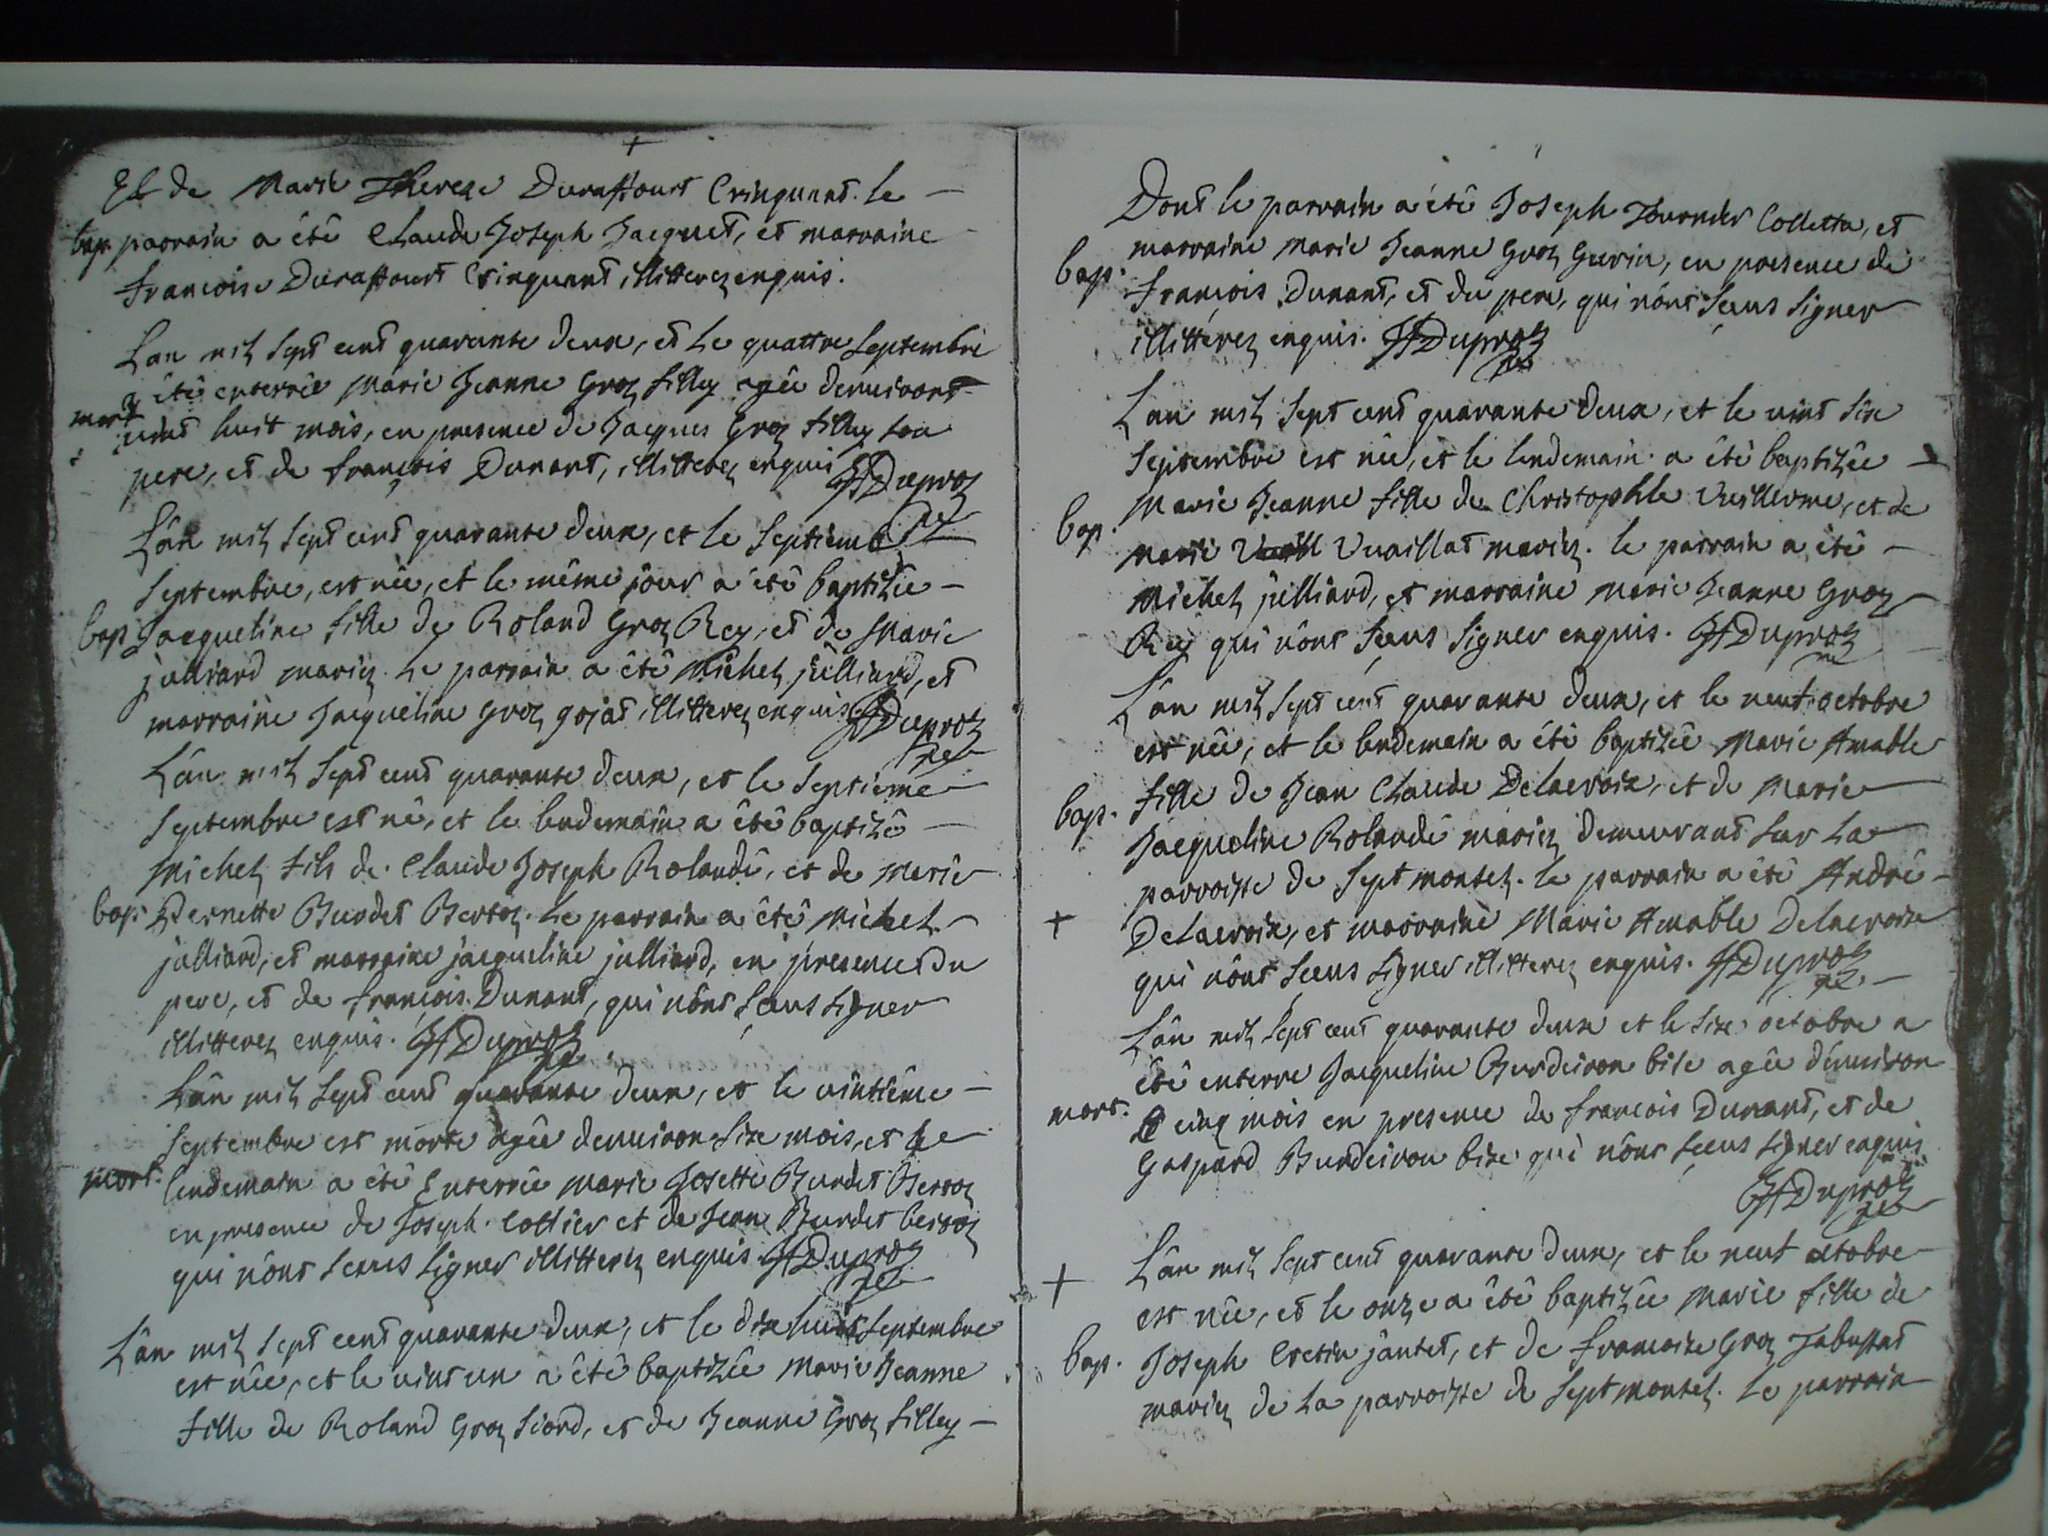 Et de Marie Therese Duraffourt Crinquant. le
bap. parrain a été Claude Joseph Jacquet, et marraine
francoise Duraffourt Crinquant illitterez enquis.
Lan mil sept cent quarante deux, et Le quattre septembre
a êtê enterrêe Marie Jeanne Groz filley agêe denuiront
mort
vint huit mois, en presence de Jacques Groz filley son
pere, et de françois Dunant, illitterez enquis JfDuproz
Lân mil sept cent quarante deux, et le septieme
septembre, est nêe, et le même jour a êtê baptizêe
bap. Jacqueline fille de Roland Groz Rey, et de Marie
julliard mariez. Le parrain a êtê Michel julliard, et
marraine Jacqueline Groz gojat illitterez enquis JfDuproz
Lân mil sept cent quarante deux, et le septieme
septembre est nê, et le lendemain a êtê baptizê
Michel fils de Claude Joseph Rolandê, et de Marie
bap. Pernette Burdet Bertoz. Le parrain a êtê Michel
julliard, et marraine jacqueline julliard, en presence du
pere, et de françois Dunant, qui nônt sçeus signer
illitterez enquis. JfDuproz
Lân mil sept cent quarante deux, et le vintiême
septembre est morte agêe denuiron sixe mois, et le
mort. lendemain a êtê Enterrêe marie Josette Burdet Bersoz
en presence de Joseph Cottier et de Jean Burdet bersoz
qui nônt sceus signer illitterez enquis JfDuproz
Lân mil sept cent quarante deux, et le dix huit septembre
est nêe, et le vint un a êtê baptizêe Marie Jeanne
fille de Roland Groz fiord, et de Jeanne Groz filley
Dont le parrain a étê Joseph Tournier Colletta, et
marraine Marie Jeanne Groz Gurin, en presence de
bap.
françois Dunant, et du pere, qui nônt sceus signer
illitterez enquis. JfDuproz
Lan mil sept cent quarante deux, et le vint six
septembre est nêe, et le lendemain a êtê baptizêe
Marie Jeanne fille de Christophle Vuillerme, et de
bap.
marie Vuaillat mariez. le parrain a êtê
Michel julliard, et marraine Marie Jeanne Groz
Rey qui nônt sçeus signer enquis. JfDuproz
Lân mil sept cent quarante deux, et le neuf octobre
est nêe, et le lendemain a êtê baptizêe Marie Amable
bap. fille de Jean Claude Delacroix, et de Marie
Jacqueline Rolandê mariez demeurant sur La
parroisse de Sept montel. le parrain a êtê Andrê
Delacroix, et marraine Marie Amable Delacroix
qui nônt sceus signer illitterez enquis. JfDuproz
Lân mil sept cent quarante deux et le sixe octobre a
êtê enterre Jacqueline Burdeiron bise agêe dênuiron
mort. cinq mois en presence de francois Dunant, et de
Gaspard Burdeiron bize qui nônt sçeus signer enquis
JfDuproz
Lân mil sept cent quarante deux, et le neuf octobre
est nêe, et le onze a êtê baptizêe Marie fille de
bap. Joseph Cretin jântet, et de francoise Groz
mariez de La parroisse de Septmontel. Le parrain